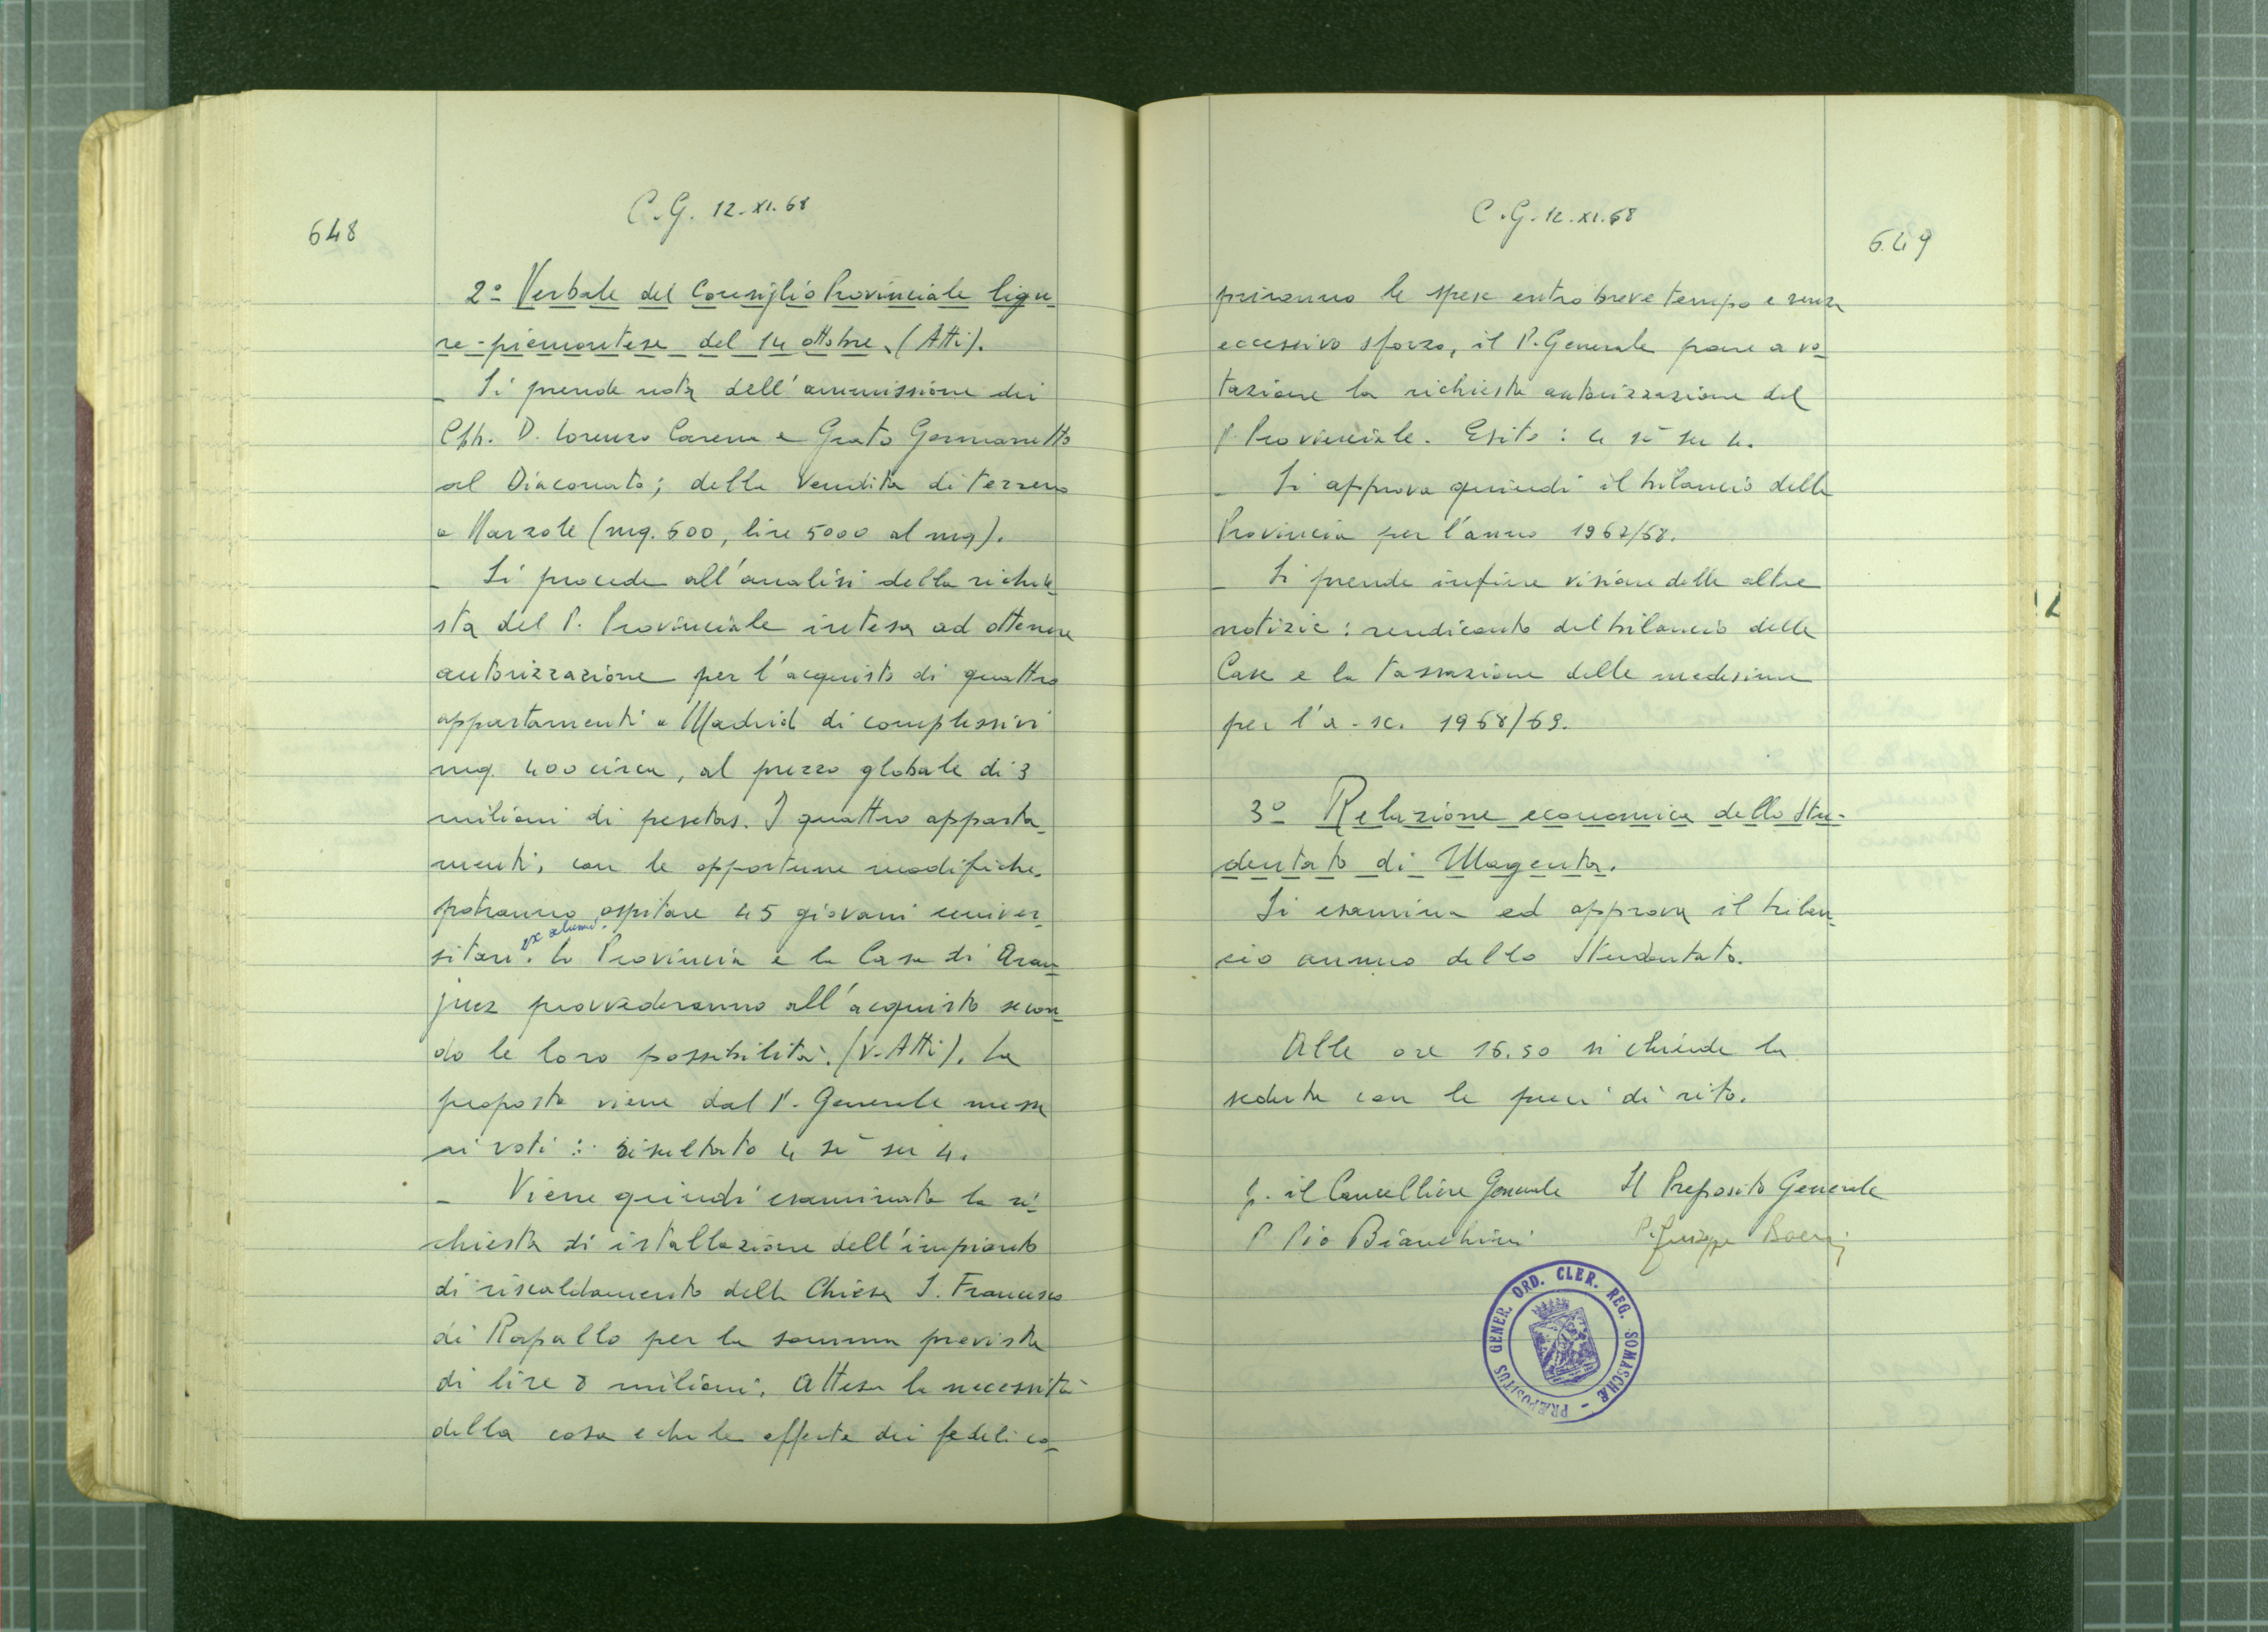 648
C.G. 12.XI.68
2º Verbale del Consiglio Provinciale ligu-
re-piemontese del 14 ottobre. (Atti).
- Si prende nota dell'ammissione dei
Cph. D. Lorenzo Carena e Grato Germanetto
al Diaconato; della vendita di terreno
a Narzole (mq. 600, lire 5000 al mq).
- Si procede all'analisi della richie-
sta del P. Provinciale intesa ad ottenere
autorizzazione per l'acquisto di quattro
appartamenti a Madrid di complessivi
mq. 400 circa, al prezzo globale di 3
milioni di pesetas. I quattro apparta-
menti, con le opportune modifiche,
potranno ospitare 45 giovani univer-
sitari ex alunni. La Provincia e la Casa di Aran-
juez provvederanno all'acquisto secon-
do le loro possibilità. (V. Atti). La
proposta viene dal P. Generale messa
ai voti: risultato 4 sì su 4.
- Viene quindi esaminata la ri-
chiesta di istallazione dell'impianto
di riscaldamento della Chiesa S. Francesco
di Rapallo per la somma prevista
di lire 8 milioni. Attesa la necessità
della cosa e che le offerte dei fedeli co-
C.G. 12.XI.68
649
priranno le spese entro breve tempo e senza
eccessivo sforzo, il P. Generale pone a vo-
tazione la richiesta autorizzazione del
P. Provinciale. Esito: 4 sì su 4.
- Si approva quindi il bilancio della
Provincia per l'anno 1967/68.
- Si prende infine visione delle altre
notizie: rendiconto del bilancio delle
Case e la tassazione delle medesime
per l'a. sc. 1968/69.
3º Relazione economica dello Stu-
dentato di Magenta.
Si esamina ed approva il bilan-
cio annuo dello Studentato.
Alle ore 16.50 si chiude la
seduta con le preci di rito.
p. il Cancelliere Generale Il Preposito Generale
P. Pio Bianchini P. Giuseppe Boeris
PRÆPOSITUS GENER. ORD. CLER. REG. SOMASCHÆ -